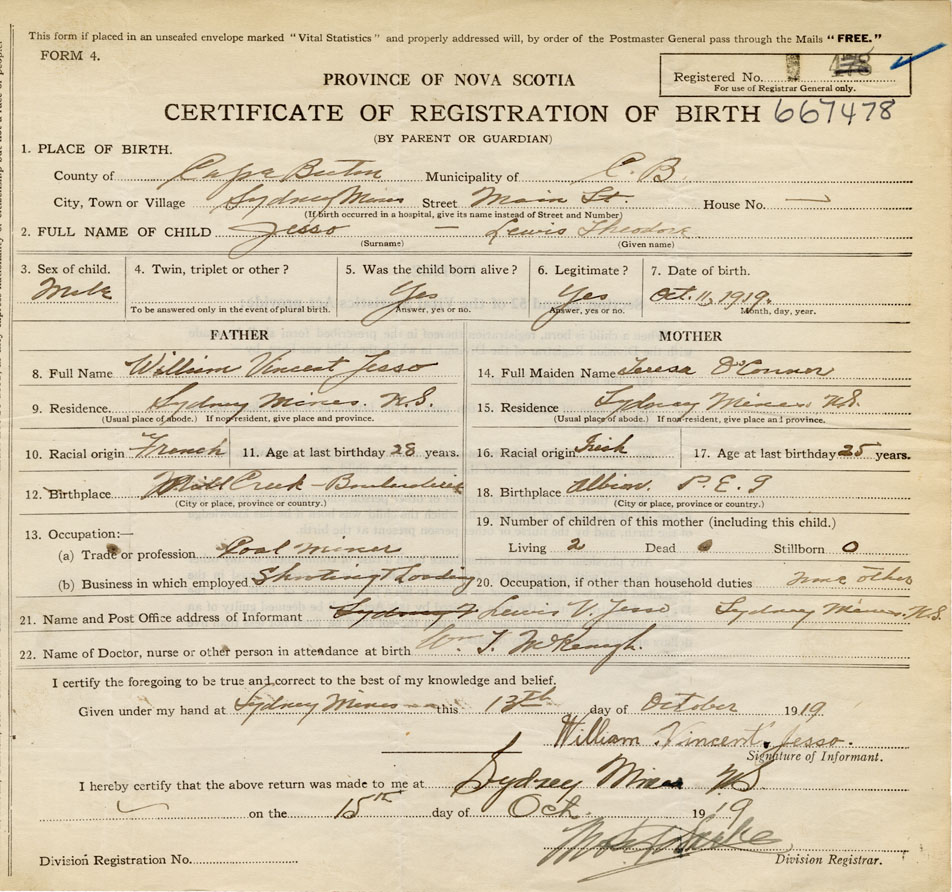 This form if placed in an unsealed envelope marked "Vital Statistics" and properly addressed will, by order of the Postmaster General pass through the Mails "FREE."
FORM 4.
Registered No. 478
For use of Registrar General only.
PROVINCE OF NOVA SCOTIA
CERTIFICATE OF REGISTRATION OF BIRTH 667478
(BY PARENT OR GUARDIAN)
1. PLACE OF BIRTH.
County of Cape Breton Municipality of C. B.
City, Town or Village Sydney Mines Street Main St. House No. —
(If birth occurred in a hospital, give its name instead of Street and Number)
2. FULL NAME OF CHILD Jesso — Lewis Theodore
(Surname) (Given name)
3. Sex of child. 4. Twin, triplet or other? 5. Was the child born alive? 6. Legitimate? 7. Date of birth.
Male Yes Yes Oct. 11, 1919.
To be answered only in the event of plural birth. Answer, yes or no. Answer, yes or no. Month, day, year.
FATHER MOTHER
8. Full Name William Vincent Jesso 14. Full Maiden Name Teresa O'Connor
9. Residence. Sydney Mines. N.S. 15. Residence Sydney Mines N.S.
(Usual place of abode.) If non-resident, give place and province. (Usual place of abode.) If non-resident, give place and province.
10. Racial origin French 11. Age at last birthday 28 years. 16. Racial origin Irish 17. Age at last birthday 25 years.
12. Birthplace Creek 18. Birthplace Albion. P. E. I
(City or place, province or country.) (City or place, province or country.)
13. Occupation:— 19. Number of children of this mother (including this child.)
(a) Trade or profession Coal Miner Living 2 Dead Stillborn 0
(b) Business in which employed Shooting & Loading 20. Occupation, if other than household duties other
21. Name and Post Office address of Informant Sydney Lewis V. Jesso Sydney Mines. N.S.
22. Name of Doctor, nurse or other person in attendance at birth Wm. McKeough.
I certify the foregoing to be true and correct to the best of my knowledge and belief.
Given under my hand at Sydney Mines this 13th day of October 1919
William Vincent Jesso.
Signature of Informant.
I hereby certify that the above return was made to me at Sydney Mines NS
on the 15th day of Oct 1919
Division Registration No. Division Registrar.